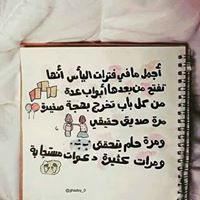 أجمل ما في فترات اليأس أنها
تفتح من بعدها أبواب عدة
من كل باب تخرج بهجة صغيرة
مرة صديق حقيقي
ومرة حلم يتحقق
ومرات كثيرة دعوات مستجابة